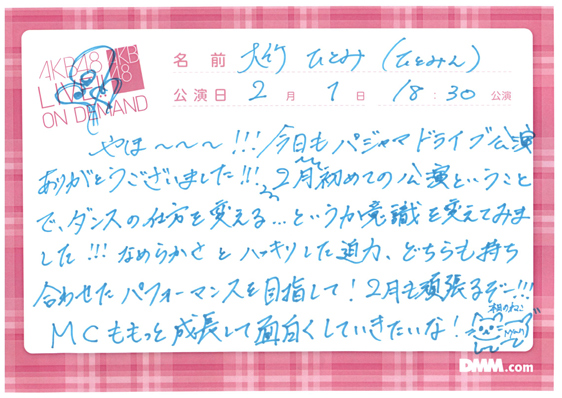 AKB48
LIVE!!
ON DEMAND
AKB
48
名前 大竹 ひとみ (ひとみん)
公演日 2月 1日 18:30 公演
やほ〜〜〜!!!今日もパジャマドライブ公演
ありがとうございました!!!2月初めての公演ということ
で、ダンスの仕方を変える...というか意識を変えてみま
した!!!なめらかさとハッキリした迫力、どちらも持ち
合わせたパフォーマンスを目指して!2月も頑張るぞー!!!
MCももっと成長して面白くしていきたいな!
DMM.com